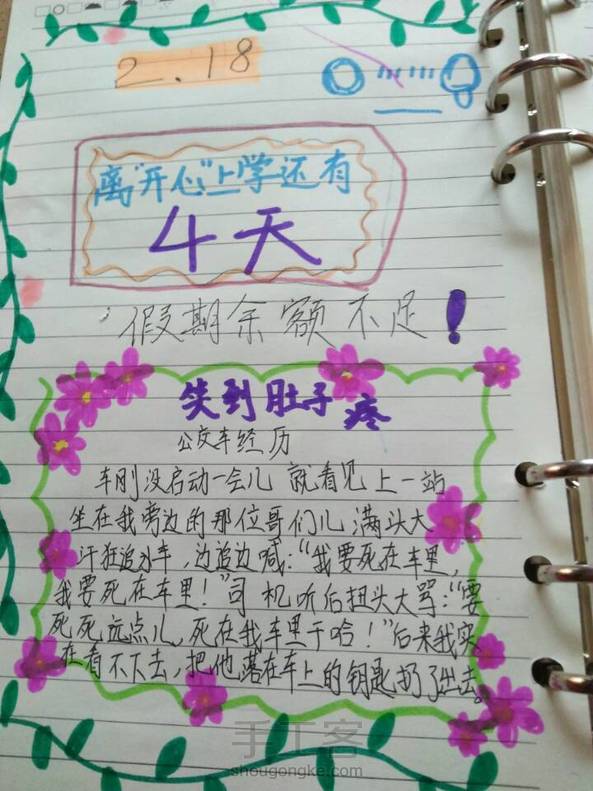 2.18
离“开心”上学还有
4天
假期余额不足！
笑到肚子疼
公交车经历
车刚没启动一会儿 就看见上一站
坐在我旁边的那位哥们儿满头大
汗狂追水车，边追边喊：“我要死在车里，
我要死在车里！”司机听后扭头大骂：“要
死死远点儿，死在我车里干哈！”后来我实
在看不下去，把他落在车上的钥匙扔了出去。
手工客
shougongke.com